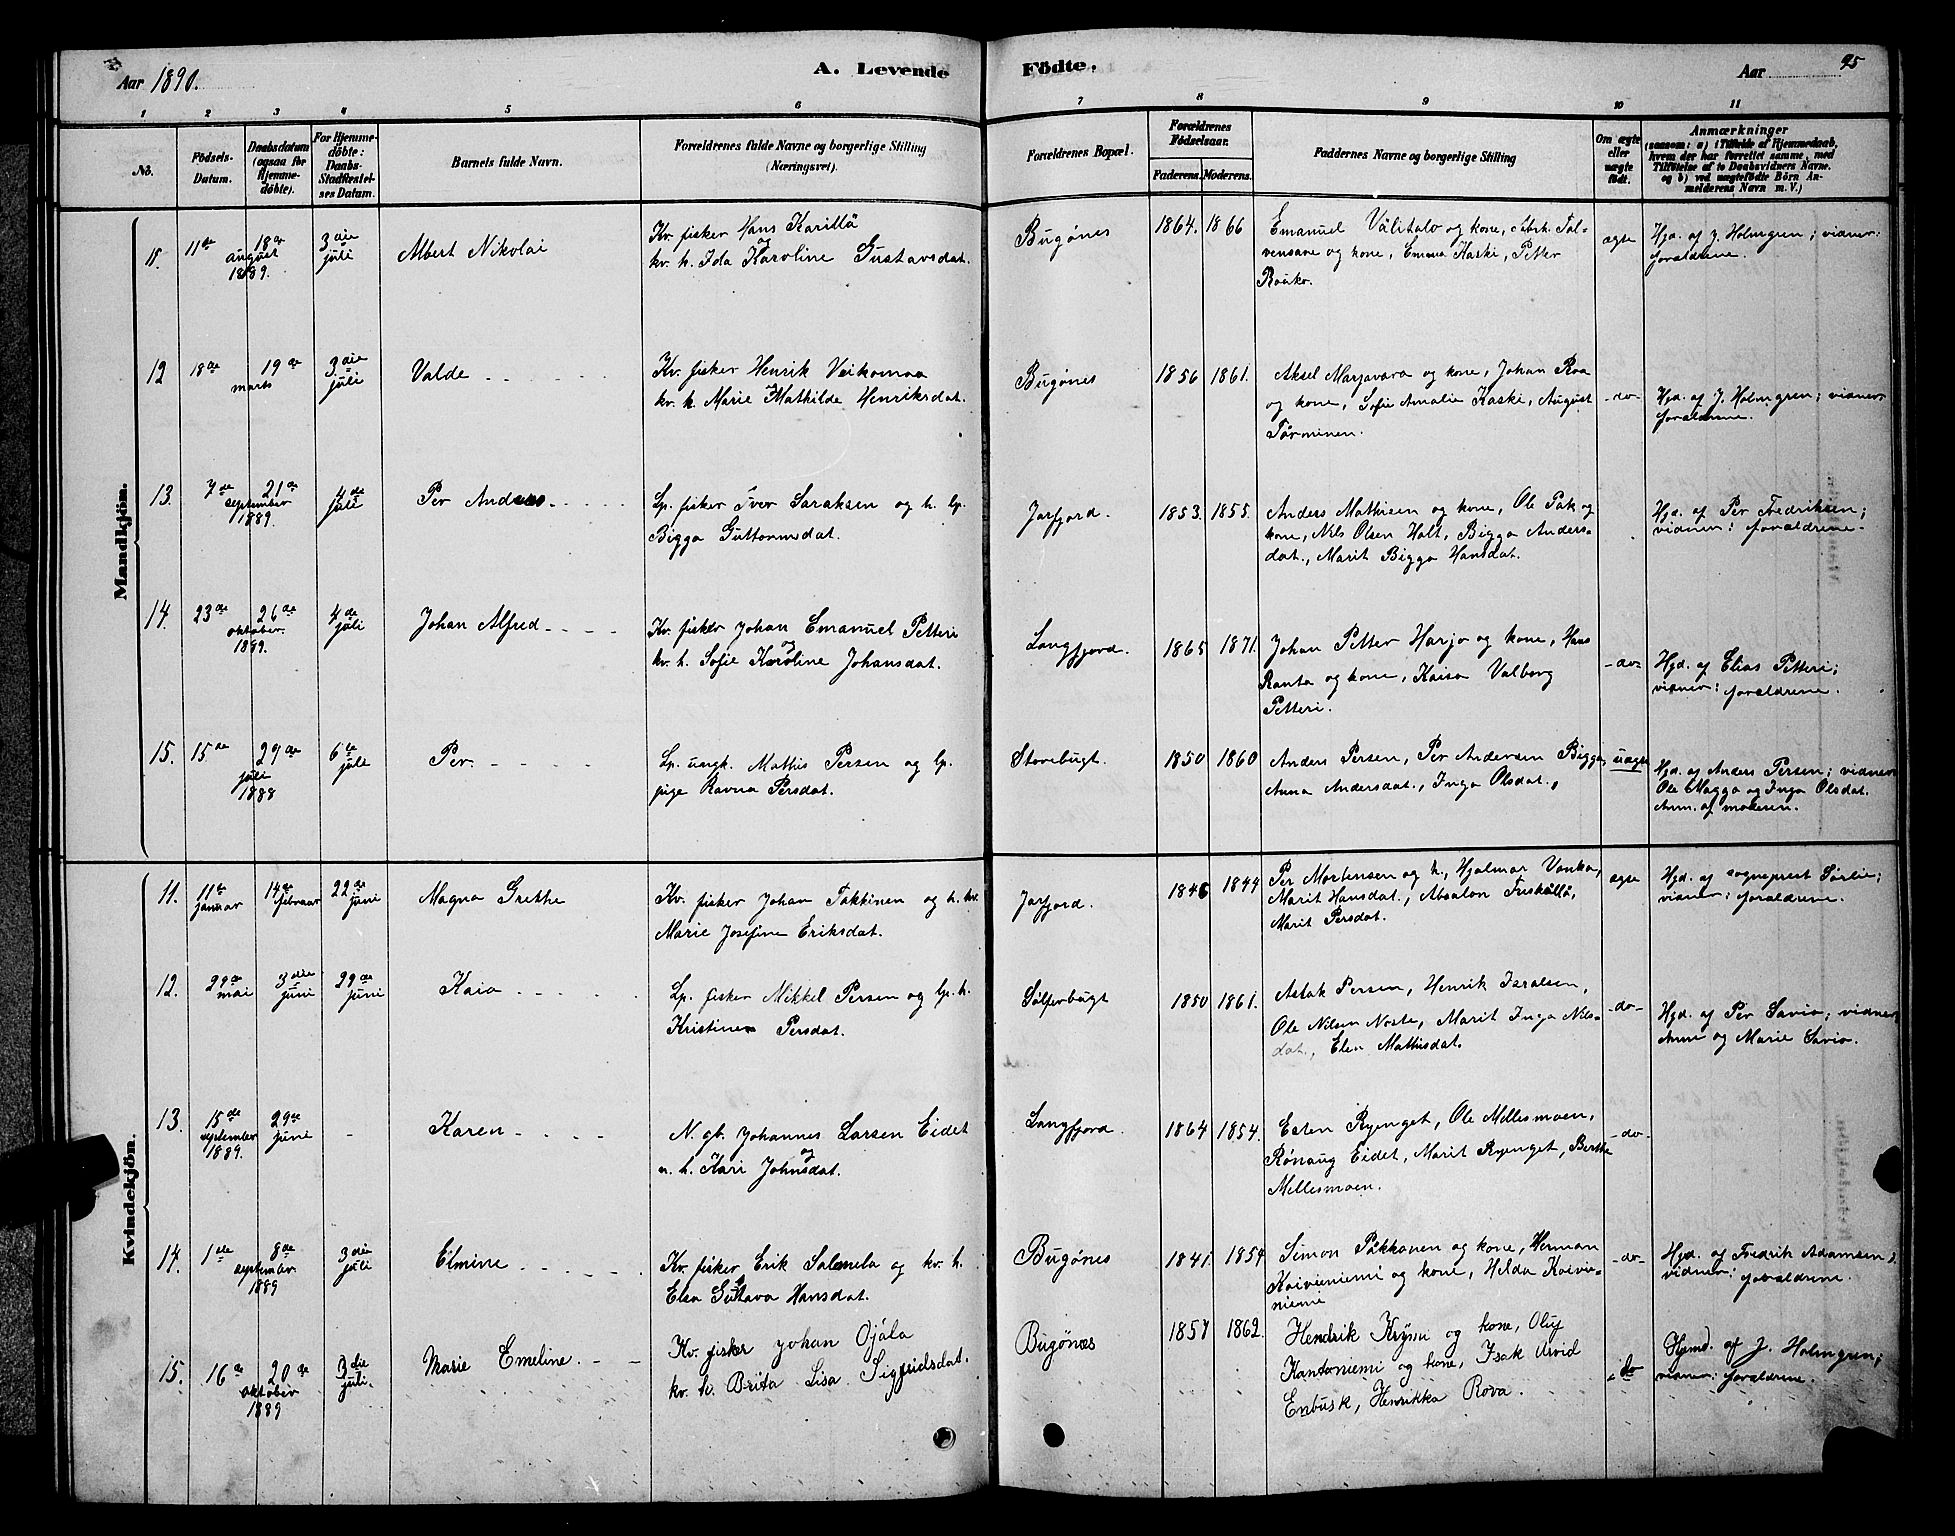 Aar 1890. A. Levende Födte. Aar 95
1 2 3 4 5 6 7 8 9 10 11
No.
Födsels-
Datum.
Daabsdatum
(ogsaa for
Hjemme-
döbte).
For Hjemme-
döbte:
Daabs-
Stadfæstel-
ses Datum.
Barnets fulde Navn.
Forældrenes fulde Navne og borgerlige Stilling
(Næringsvei).
Forældrenes Bopæl.
Forældrenes
Födselsaar.
Faderens. Moderens.
Faddernes Navne og borgerlige Stilling
Om ægte
eller
uægte
födt.
Anmærkninger
(saasom: a) i Tilfælde af Hjemmedaab,
hvem der har forrettet samme, med
Tilföielse af to Daabsvidners Navne,
og b) ved uægtefödte Börn An-
melderens Navn m. V.)
Mandkjön.
11. 11te 18de
august
1889.
3die
juli
Albert Nikolai
Kv. fisker Hans Karillä
og
kv. h. Ida Karoline Gustavsdat.
Bugönes
1864. 1866
Emanuel Välitalo og kone, Abrh. Tal-
vensare og kone, Emma Kaski, Petter
Rouko.
ægte
Hjd. af J. Holmgren; vidner:
forældrene.
12 18de 19de
marts
3die
juli
Valde
Kv. fisker Henrik Veikomaa
kv. h. Marie Mathilde Henriksdat.
Bugönes
1856 1861.
Aksel Marjavara og kone, Johan Roa
og kone, Sofie Amalie Kaski, August
Törminen.
-do-
Hjd. af J. Holmgren; vidner
forældrene.
13. 7de 21de
september
1889.
4de
juli
Per Anders
Lp. fisker Iver Saraksen og h. lp.
Bigga Guttormsdat.
Jarfjord.
1853. 1855.
Anders Mathisen og kone, Ole Pak og
kone, Nils Olsen Holt, Bigga Anders-
dat., Marit Bigga Hansdat.
Hjd. af Per Fredriksen;
vidner: forældrene.
14. 23de 26de
oktober.
1889.
4de
juli
Johan Alfred
Kv. fisker Johan Emanuel Petteri
og
kv. h. Sofie Karoline Johansdat.
Langfjord.
1865 1871.
Johan Petter Harjo og kone, Hans
Ranta og kone, Kaisa Valborg
Petteri.
-do-
Hjd. af Elias Petteri;
vidner: forældrene.
15. 15de 29de
juli
1888
6te
juli
Per.
Lp. ungk. Mathis Persen og lp.
pige Ravna Persdat.
Storebugt.
1850 1860
Anders Persen, Per Andersen Bigga,
Anna Andersdat., Inga Olsdat.,
uægte
Hjd. af Anders Persen; vidner
Ole Magga og Inga Olsdat.
Anm. af moderen.
Kvindekjön.
11. 11te
januar
14de
februar
22de
juni
Magna Grethe
Kv. fisker Johan Takkinen og h. kv.
Marie Josefine Eriksdat.
Jarfjord.
1846 1849
Per Mortensen og h., Hjalmar Vonka,
Marit Hansdat., Absalon Tuskulla,
Marit Persdat.
ægte
Hjd. af sogneprest Sørlie;
vidner: forældrene.
12. 29de
mai
3die
juni
29de
juni
Kaia
Lp. fisker Mikkel Persen og lp. h.
Kristine Persdat.
Sölferbugt
1850 1861.
Aslak Persen, Henrik Isralsen,
Ole Nilsen Noste, Marit Inga Nils-
dat., Elen Mathisdat.
-do-
Hjd. af Per Savio; vidner:
Anne og Marie Savio.
13. 15de
september
1889.
29de
juni
-
Karen
N. gb. Johannes Larsen Eidet
og
n. h. Kari Johnsdat.
Langfjord.
1864 1854.
Esten Ryenget, Ole Mellesmoen,
Rönaug Eidet, Marit Ryenget, Berthe
Mellesmoen.
-do-
14. 1ste 8de
september.
1889
3die
juli
Elmine
Kv. fisker Erik Salmela og kv. h.
Elsa Gustava Hansdat.
Bugönes
1841. 1854
Simon Pakkanen og kone, Herman
Koivuniemi og kone, Helda Koivu-
niemi
-do-
Hjd. af Fredrik Adamsen;
vidner: forældrene.
15. 16de 20de
oktober
1889
3die
juli.
Marie Emeline.
Kv. fisker Johan Ojala
kv. h. Brita Lisa Sigfridsdat.
Bugönæs
1857 1862.
Hendrik Krÿni og kone, Oluf
Kantoniemi og kone, Isak Arvid
Enbusk, Henrikka Rova.
do
Hjmd. af J. Holmgren;
vidner: forældrene.